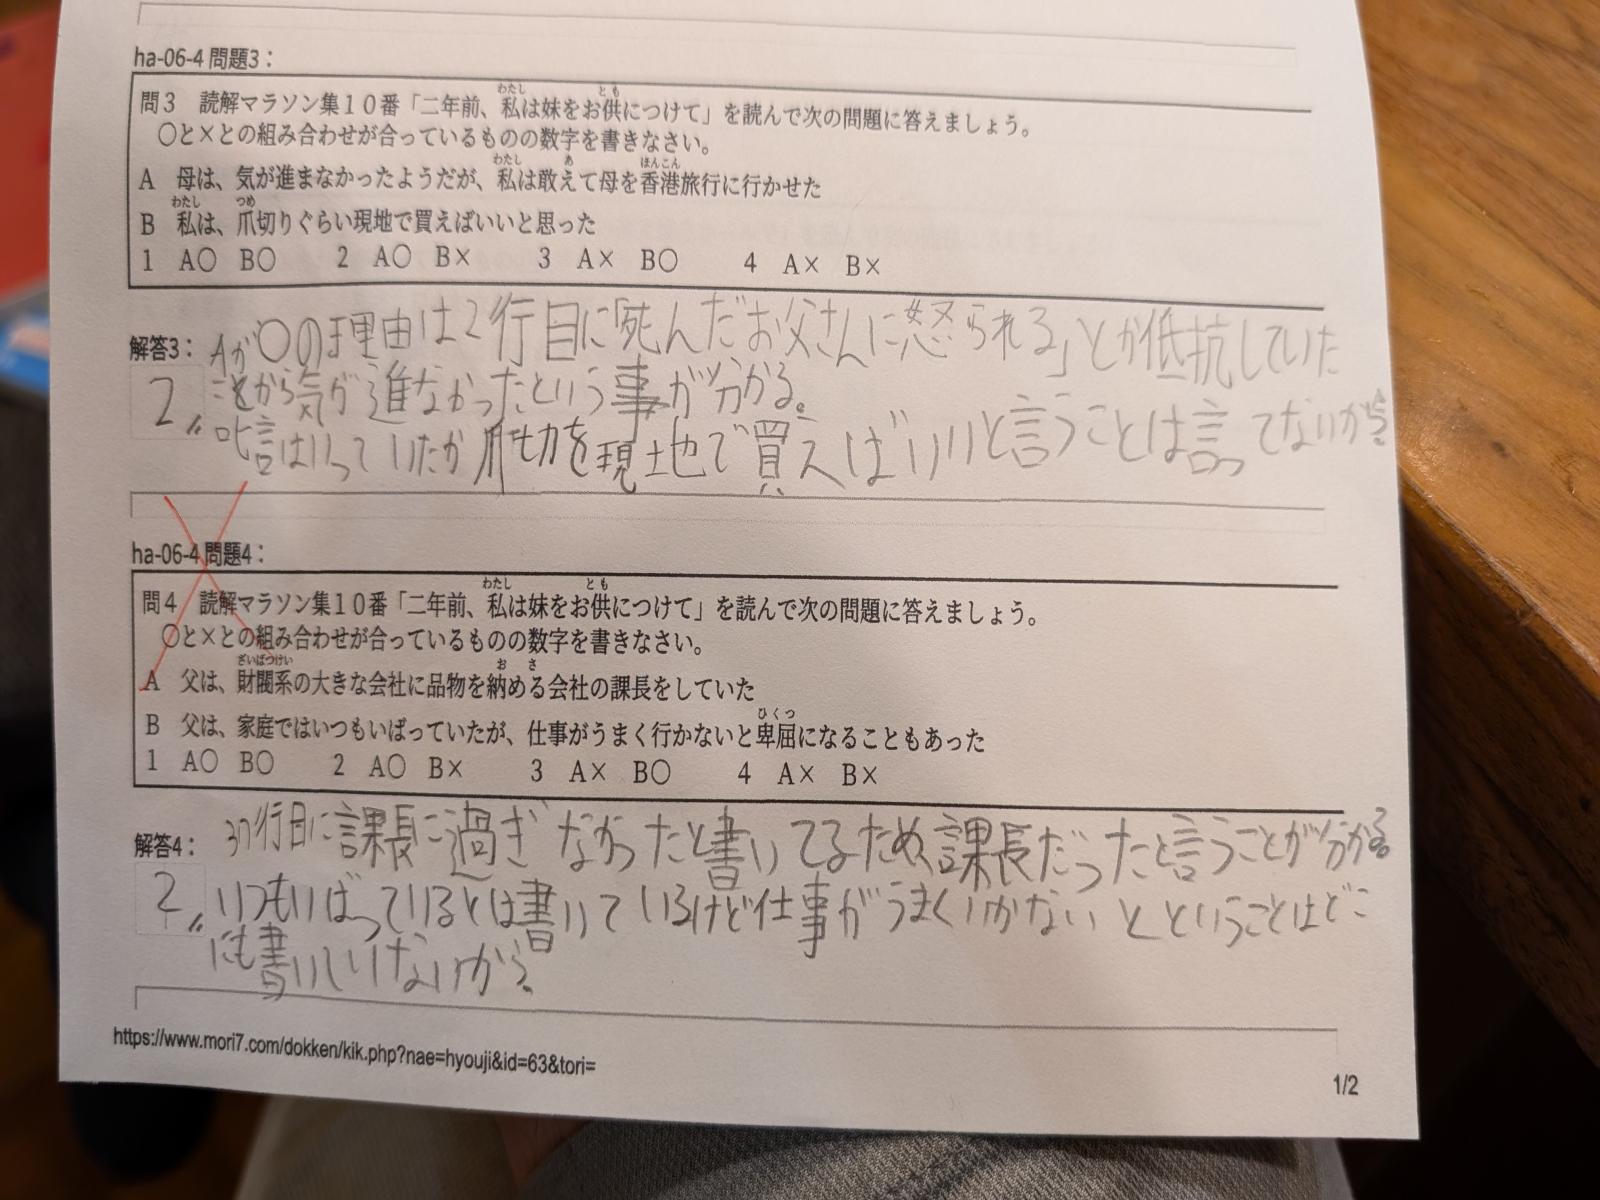 ha-06-4 問題3：
問３　読解マラソン集１０番「二年前、私は妹をお供につけて」を読んで次の問題に答えましょう。
わたし とも
○と×との組み合わせが合っているものの数字を書きなさい。
わたし あ ほんこん
A　母は、気が進まなかったようだが、私は敢えて母を香港旅行に行かせた
わたし つめ
B　私は、爪切りぐらい現地で買えばいいと思った
1　A○　B○　　2　A○　B×　　3　A×　B○　　4　A×　B×
解答3：
Aが○の理由は2行目に「死んだお父さんに怒られる」とか低抗していた
2
ことから気が進なかったという事が分かる。
言はいっていたが爪切を現地で買えばいいと言うことは言ってないから。
ha-06-4 問題4：
わたし とも
問４　読解マラソン集１０番「二年前、私は妹をお供につけて」を読んで次の問題に答えましょう。
○と×との組み合わせが合っているものの数字を書きなさい。
ざいばつけい おさ
A　父は、財閥系の大きな会社に品物を納める会社の課長をしていた
ひくつ
B　父は、家庭ではいつもいばっていたが、仕事がうまく行かないと卑屈になることもあった
1　A○　B○　　2　A○　B×　　3　A×　B○　　4　A×　B×
解答4：
行目に課長に過ぎなかったと書いてるため、課長だったと言うことが分かる。
2
いつもいばっているとは書いているけど仕事がうまくいかないとということはどこ
にも書いしいけないから。
https://www.mori7.com/dokken/kik.php?nae=hyouji&id=63&tori=
1/2